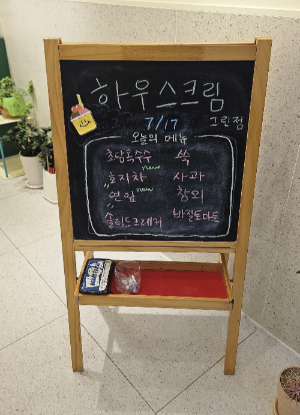 하우스크림
그린점
7/17
오늘의 메뉴
초당옥수수 쑥
new
호지차 사과
new
연유 참외
솔티드크래커 바질토마토